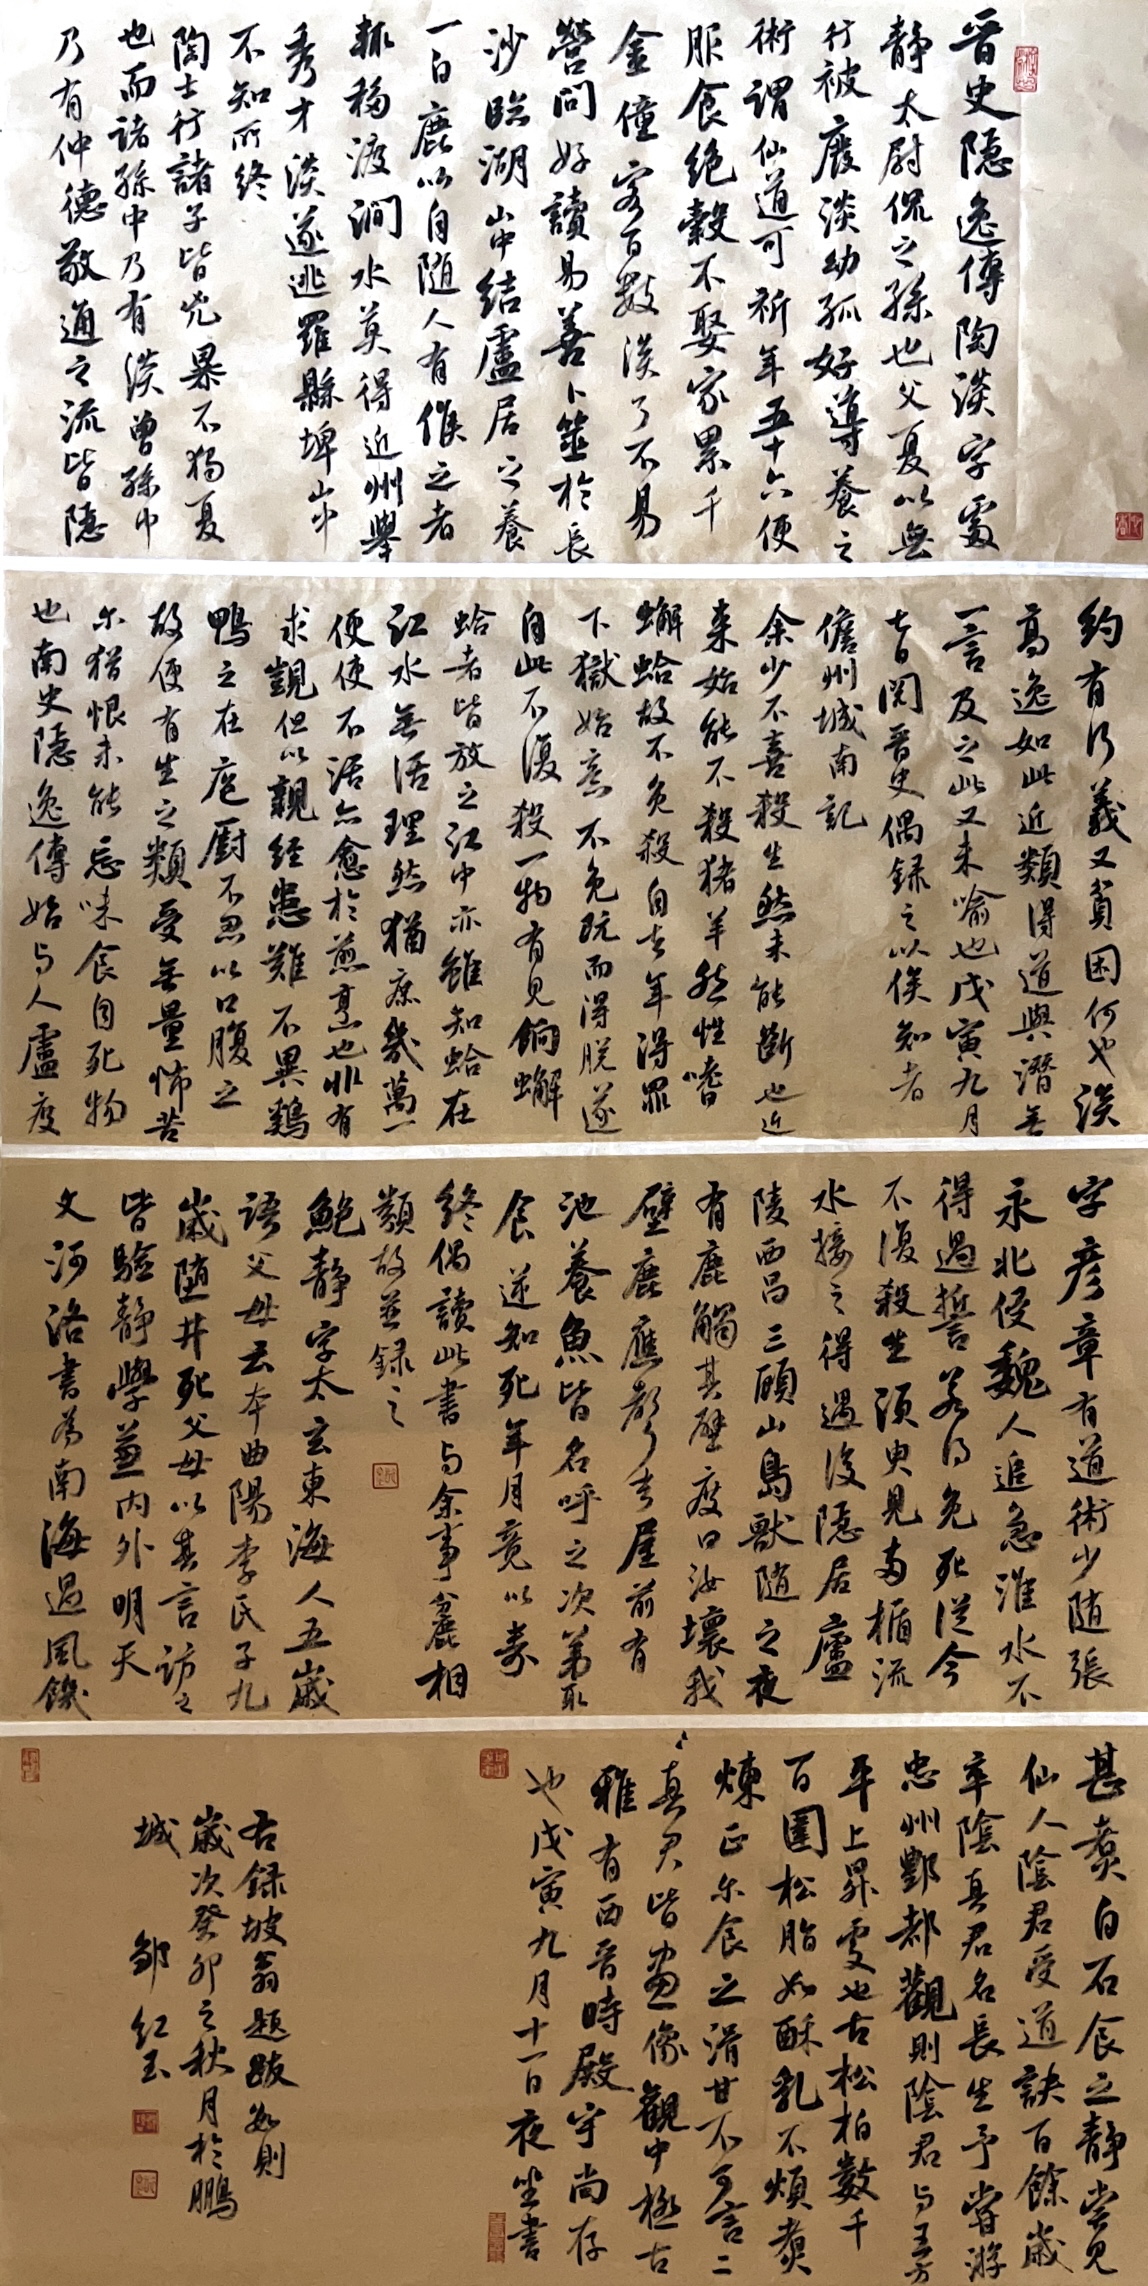 晋史隱逸傳陶淡字處
靜太尉侃之孫也父夏以無
行被廢淡幼孤好導養之
術謂仙道可祈年五十六便
服食絕穀不娶家累千
金僮客百數淡了不易
營問好讀易善卜筮於長
沙臨湖山中結廬居之養
一白鹿以自随人有候之者
輒移渡澗水莫得近州舉
秀才淡遂逃羅縣埤山中
不知所終
陶士行諸子皆凶暴不獨夏
也而諸孫中乃有淡曾孫中
乃有仲德敬通之流皆隱
約有行義又貧困何也淡
高逸如此近類得道與潛無
一言及之此又未喻也戊寅九月
七日閱晋史偶録之以俟知者
儋州城南記
余少不喜殺生然未能斷也近
来始能不殺猪羊然性嗜
蠏蛤故不免殺自去年得罪
下獄始意不免既而得脱遂
自此不復殺一物有見餉蠏
蛤者皆放之江中亦雖知蛤在
江水無活理然猶庶幾萬一
便使不活亦愈於煎烹也非有
求覬但以親經患難不異鷄
鴨之在庖厨不忍以口腹之
故使有生之類受無量怖苦
尔猶恨未能忘味食自死物
也南史隱逸傳始与人盧度
字彦章有道術少随張
永北侵魏人追急淮水不
得過誓若得免死從今
不復殺生須臾見兩楯流
水接之得過後隱居廬
陵西昌三顧山鳥獸随之夜
有鹿觸其壁度曰汝壞我
壁鹿應聲去屋前有
池養魚皆名呼之次第取
食逆知死年月竟以壽
終偶讀此書与余事麤相
類故並録之
鮑靜字太玄東海人五歲
語父母云本曲陽李氏子九
歲墮井死父母以其言訪之
皆驗靜學兼内外明天
文河洛書为南海過風饑
甚煮白石食之靜嘗見
仙人陰君受道訣百餘歲
卒陰真君名長生予嘗游
忠州酆都觀則陰君与王方
平上昇處也古松柏數千
百圍松脂如酥乳不煩煮
煉正尔食之滑甘不可言二
真君皆畫像觀中極古
雅有西晋時殿宇尚存
也戊寅九月十一日夜坐書
右録坡翁題跋如則
歲次癸卯之秋月於鵬
城 鄒紅玉